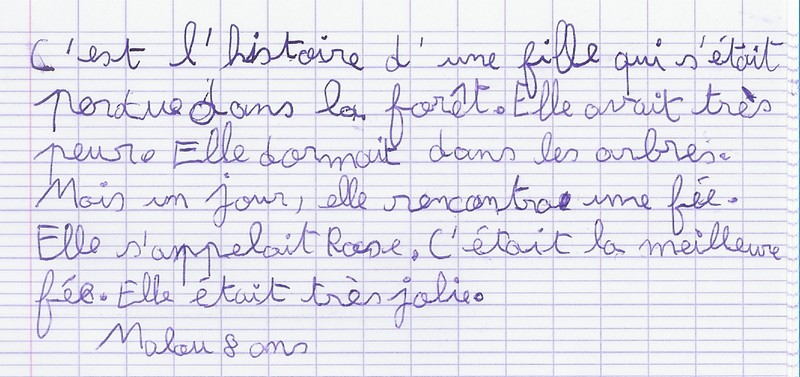 C'est l'histoire d'une fille qui s'était
perdue dans la forêt. Elle avait très
peur. Elle dormait dans les arbres.
Mais un jour, elle rencontra une fée.
Elle s'appelait Rose. C'était la meilleure
fée. Elle était très jolie.
Malou 8 ans